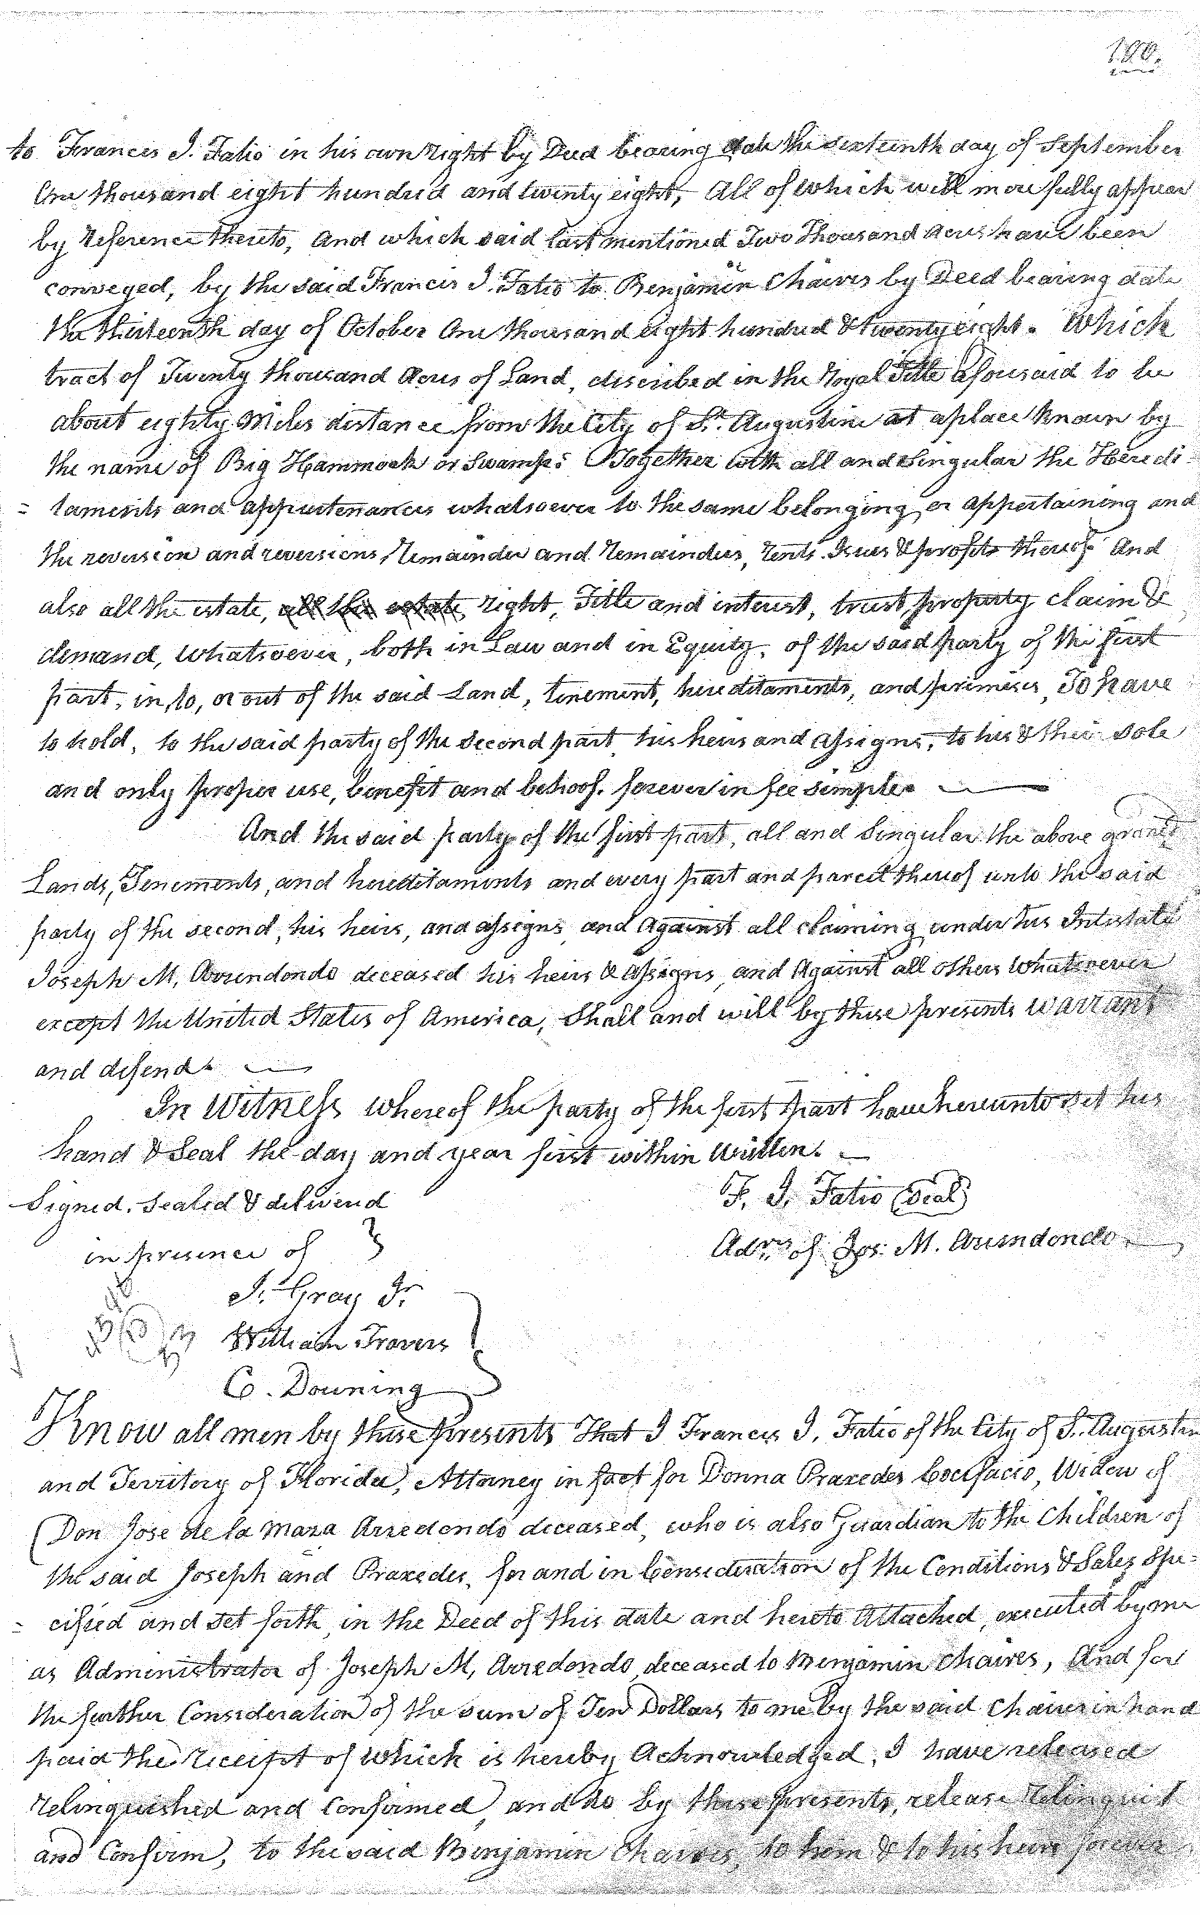 100.
to Francis J. Fatio in his own right by Deed bearing date the sixteenth day of September
One thousand eight hundred and twenty eight, All of which will more fully appear
by reference thereto, And which said last mentioned Two Thousand acres have been
conveyed, by the said Francis J. Fatio to Benjamin Chaires by Deed bearing date
the thirteenth day of October One thousand eight hundred & twenty eight. Which
tract of Twenty thousand Acres of Land, discribed in the Royal Title afousaid to be
about eighty Miles distance from the City of St. Augustine at a place known by
the name of Big Hammock or Swamp: Together with all and Singular the Heredi-
= taments and appurtenances whatsoever to the same belonging or appertaining and
the revision and reversions, Remainder and Remainders, rents Issues & profits thereof. And
also all the estate, all the estate, right, Title and interest, trust, property claim &
demand, whatsoever, both in Law and in Equity, of the said party of the first
part, in, to, or out of the said Land, tenement, hereditaments, and primises, To have
to hold, to the said party of the second part, his heirs and assigns, to his & their sole
and only proper use, benefit and behoof. forever in fee simple.
And the said party of the first part, all and Singular the above granted
Lands, Tenements, and hereditaments and every part and parcel thereof unto the said
party of the second, his heirs, and assigns, and Against all claiming under his Intestate
Joseph M, Arrendondo deceased his heirs & assigns, and Against all others Whatsoever
except the United States of America, Shall and will by these presents warrant
and defend.
In Witness whereof the party of the first part have hereunto set his
hand & Seal the day and year first within written.
Signed, Sealed & deliverd
F. J. Fatio (Seal)
in presence of
Admr. of Jos: M. Arrendondo
J. Gray Jr.
William Travers
C. Downing
Know all men by these presents That I Francis J. Fatio of the City of St. Augustin
and Territory of Florida, Attorney in fact for Donna Praxedes Bocifacio, Widow of
Don Jose de la Maza Arredondo deceased, who is also Guardian to the Children of
the said Joseph and Praxedes, for and in Consideration of the Conditions & Sales Spe-
= cified and set forth, in the Deed of this date and hereto Attached, executed by me
as Administrator of Joseph M, Arredondo, deceased to Benjamin Chaires, And for
the further Consideration of the sum of Ten Dollars to me by the said Chaires in hand
paid the receipt of which is hereby Acknowledged, I have released
relinquished and confirmed, and do by these presents, release relinquish
and Confirm, to the said Benjamin Chaires, to him & to his heirs forever